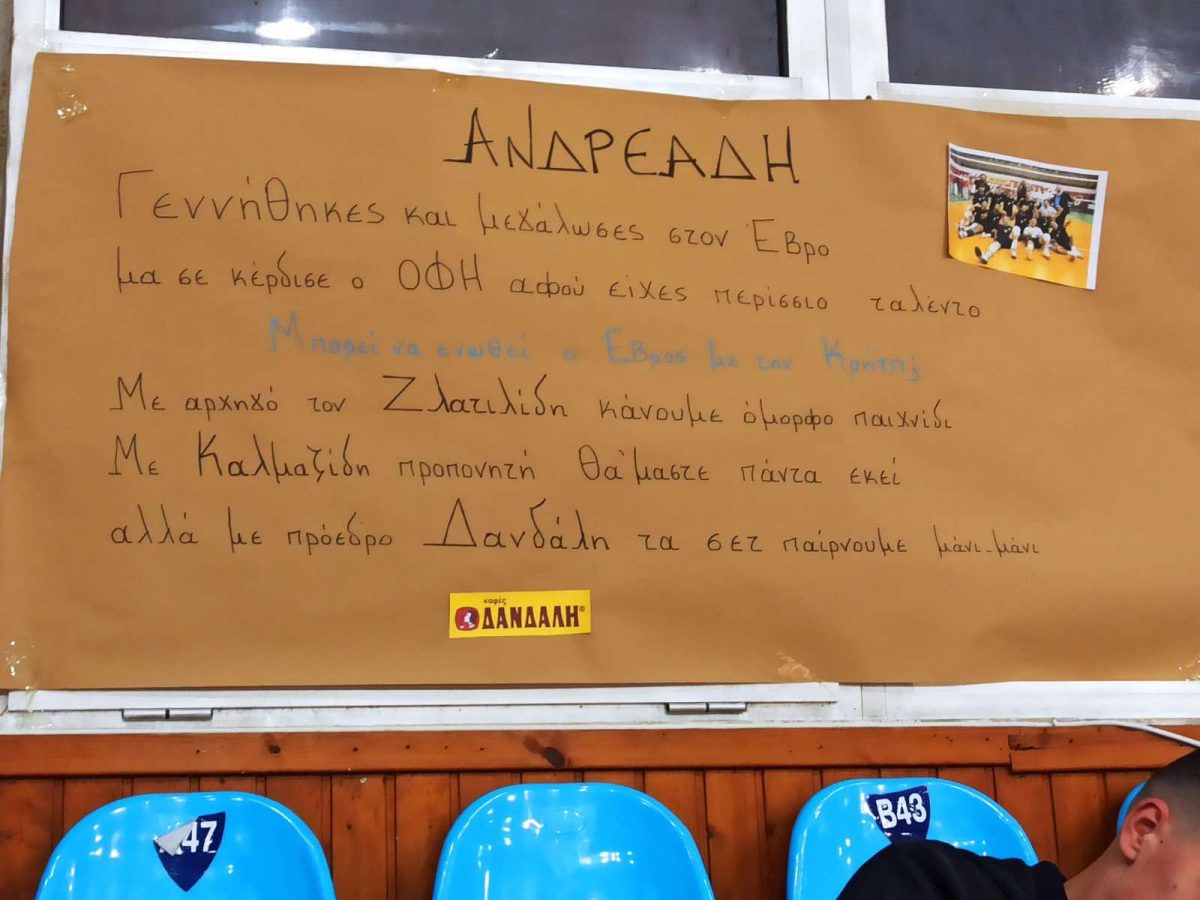 ΑΝΔΡΕΑΔΗ
Γεννήθηκες και μεγάλωσες στον Έβρο
μα σε κέρδισε ο ΟΦΗ αφού είχες περίσσιο ταλέντο
Μπορεί να ενωθεί ο Έβρος με την Κρήτη;
Με αρχηγό τον Ζλατιλίδη κάνουμε όμορφο παιχνίδι
Με Καλμαζίδη προπονητή θα'μαστε πάντα εκεί
αλλά με πρόεδρο Δανδάλη τα σετ παίρνουμε μάνι-μάνι
καφές
ΔΑΝΔΑΛΗ®
47
B43